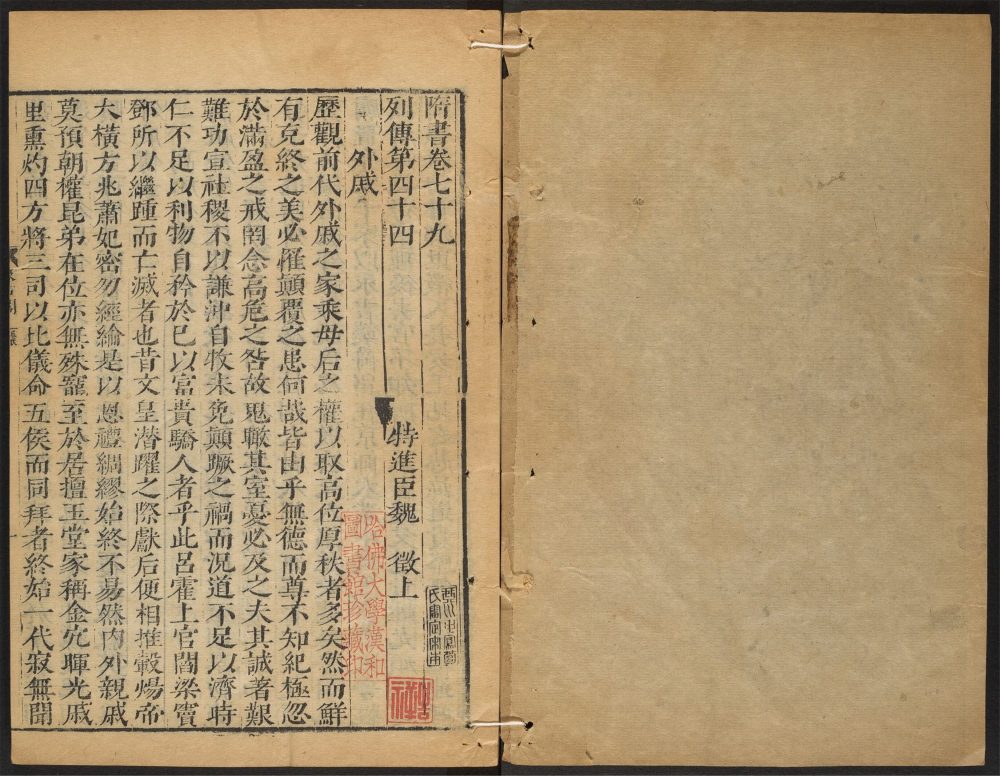 隋書卷七十九
列傳第四十四 特進臣魏 徵上
外戚
歷觀前代外戚之家乘母后之權以取高位厚秩者多矣然而鮮
有克終之美必罹顛覆之患何哉皆由乎無德而尊不知紀極忽
於滿盈之戒罔念高危之咎故鬼瞰其室憂必及之夫其誠著艱
難功宣社稷不以謙沖自牧未免顛蹶之禍而況道不足以濟時
仁不足以利物自矜於已以富貴驕人者乎此呂霍上官閻梁竇
鄧所以繼踵而亡滅者也昔文皇潛躍之際獻后便相推轂煬帝
大橫方兆蕭妃密勿經綸是以恩禮綢繆始終不易然內外親戚
莫預朝權昆弟在位亦無殊寵至於居擅玉堂家稱金穴暉光戚
里熏灼四方將三司以比儀命五侯而同拜者終始一代寂無聞
哈佛大學漢和
圖書館珍藏印